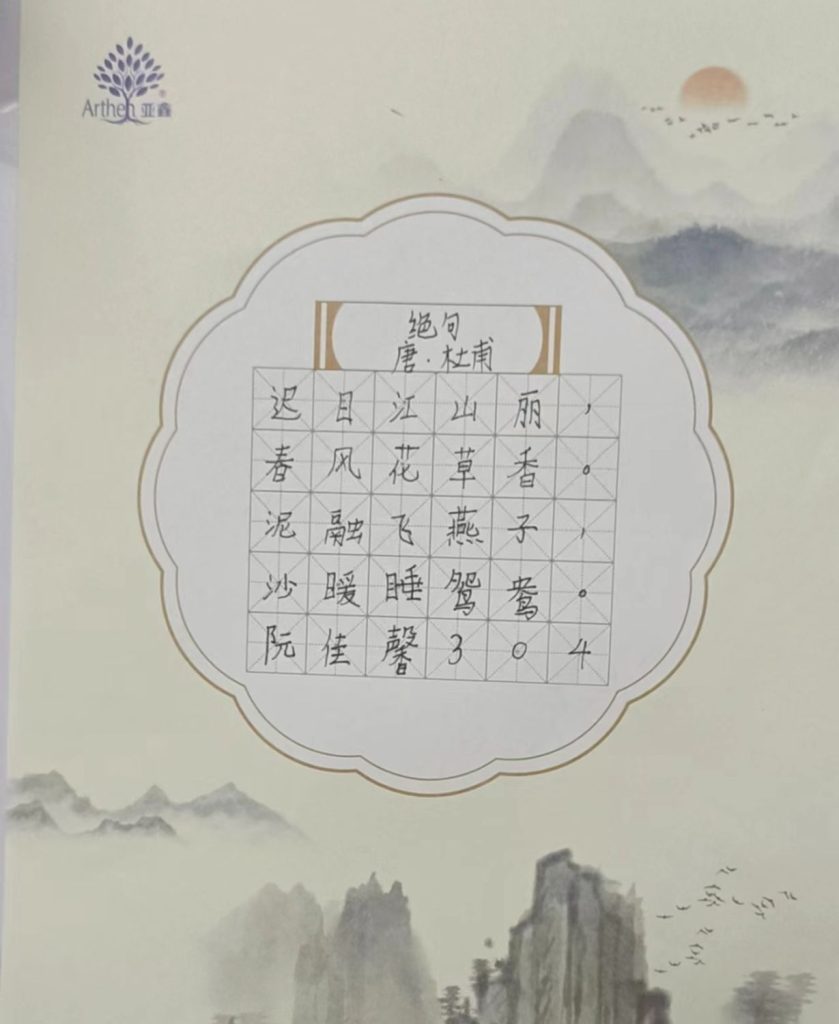 Arthen 亚鑫
绝句
唐·杜甫
迟目江山丽，
春风花草香。
泥融飞燕子，
沙暖睡鸳鸯。
阮佳馨304